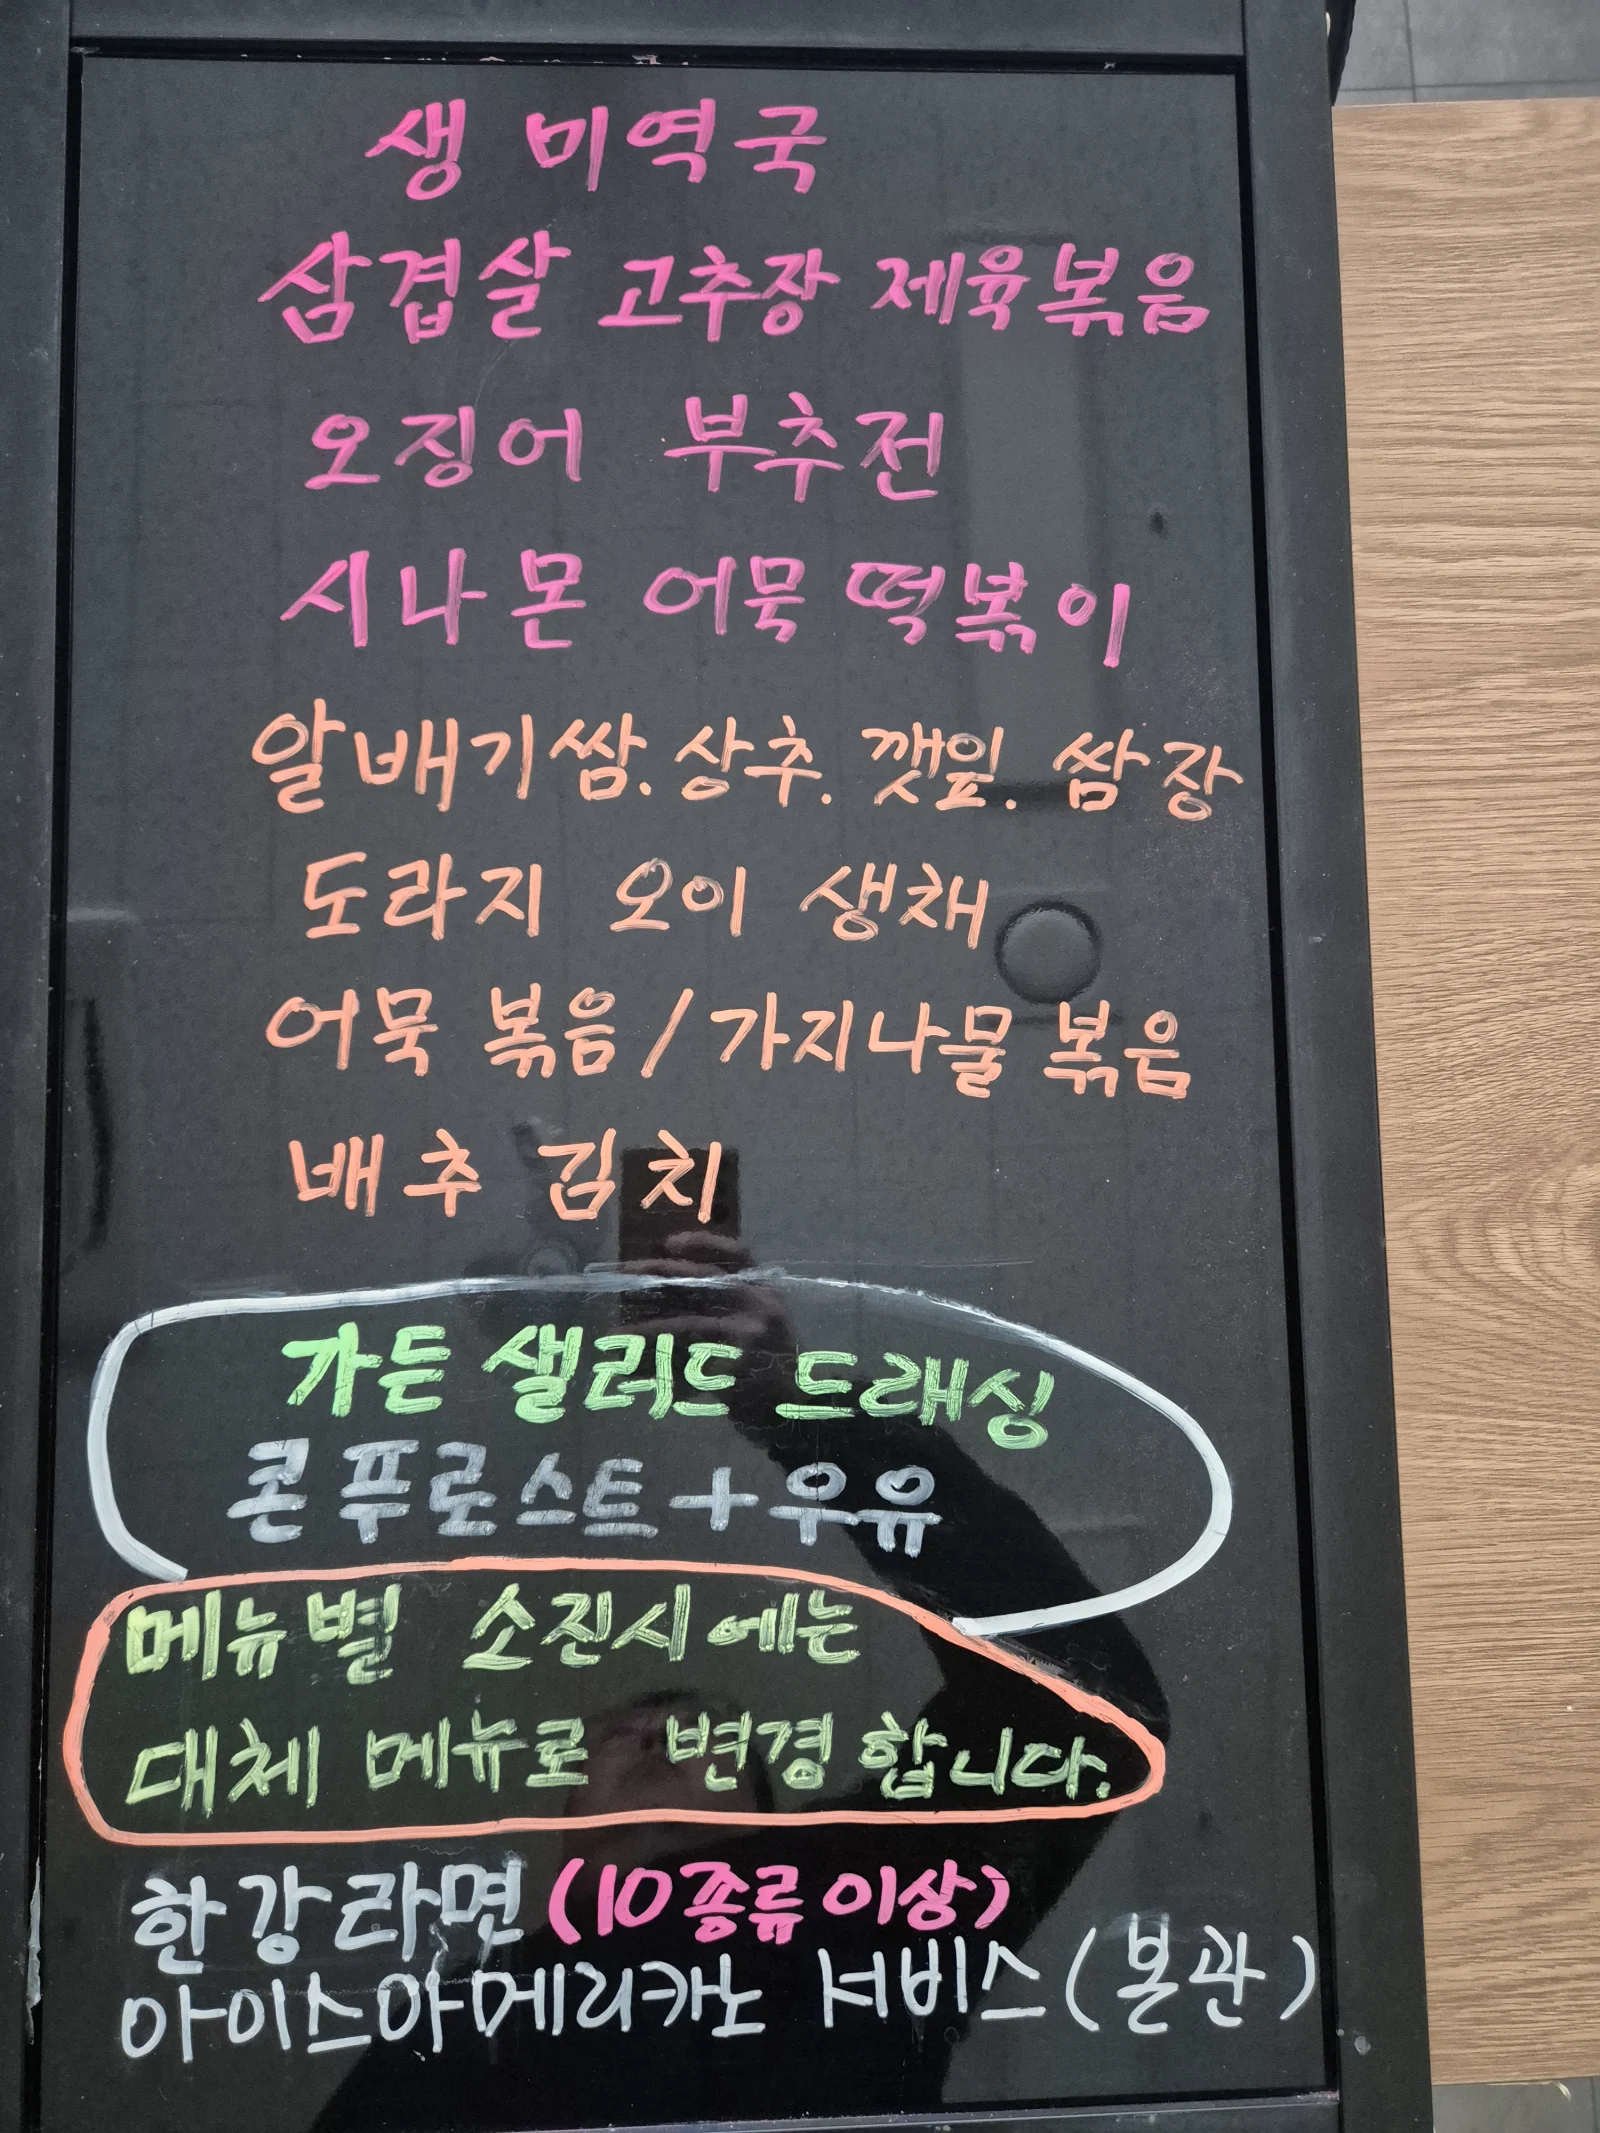 생 미역국
삼겹살 고추장 제육볶음
오징어 부추전
시나몬 어묵 떡볶이
알배기쌈. 상추. 깻잎. 쌈장
도라지 오이 생채
어묵 볶음 / 가지나물 볶음
배추 김치
가든 샐러드 드래싱
콘푸로스트 + 우유
메뉴별 소진시에는
대체 메뉴로 변경 합니다.
한강라면 (10종류이상)
아이스아메리카노 서비스 (본관)